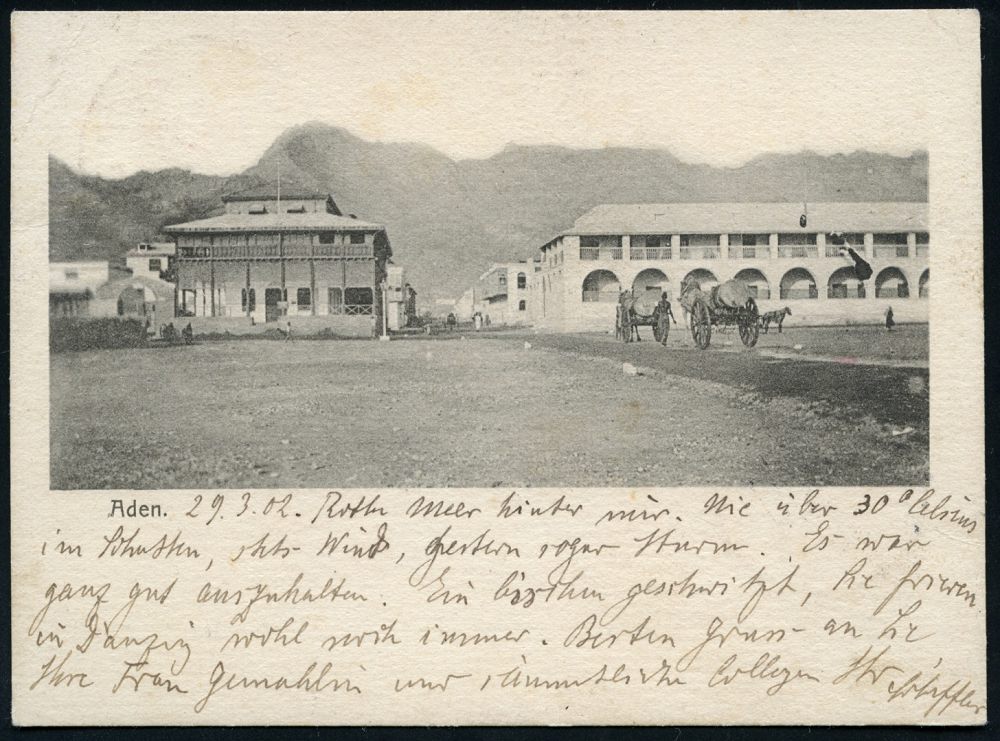 Aden. 29.3.02. Rothe Meer hinter mir. Nie über 30° Celsius
im Schatten, stets Wind, gestern sogar Sturm. Es war
ganz gut auszuhalten. Ein bisschen geschwitzt, Sie frieren
in Danzig wohl noch immer. Besten Gruss an Sie
Ihre Frau Gemahlin und sämmtliche Collegen Ihr